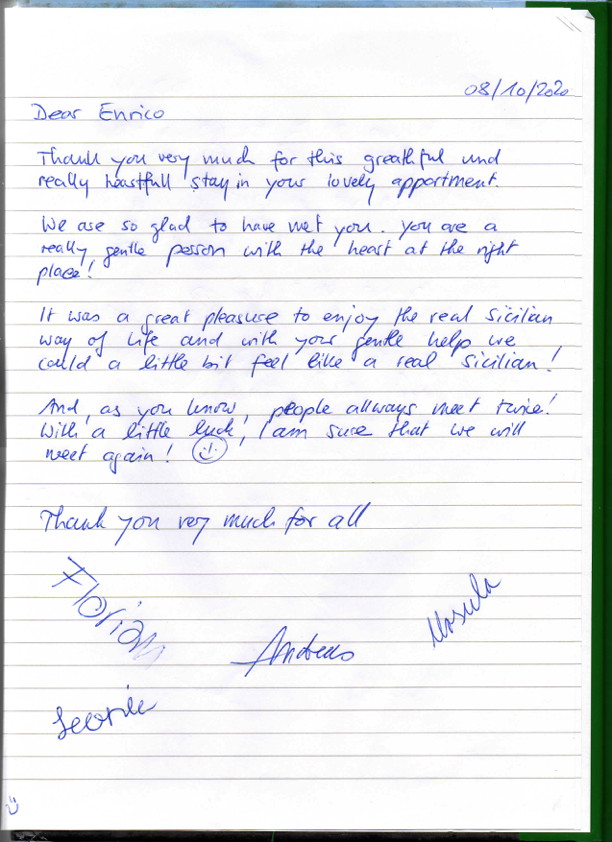 08/10/2020
Dear Enrico
Thank you very much for this greathful und
really heartfull stay in your lovely appartment.
We are so glad to have met you. you are a
really, gentle person with the heart at the right
place!
It was a great pleasure to enjoy the real Sicilian
way of life and with your gentle help we
could a little bit feel like a real Sicilian!
And, as you know, people allways meet twice!
With a little luck, I am sure that we will
meet again!
Thank you very much for all
Florian
Andreas
Ursula